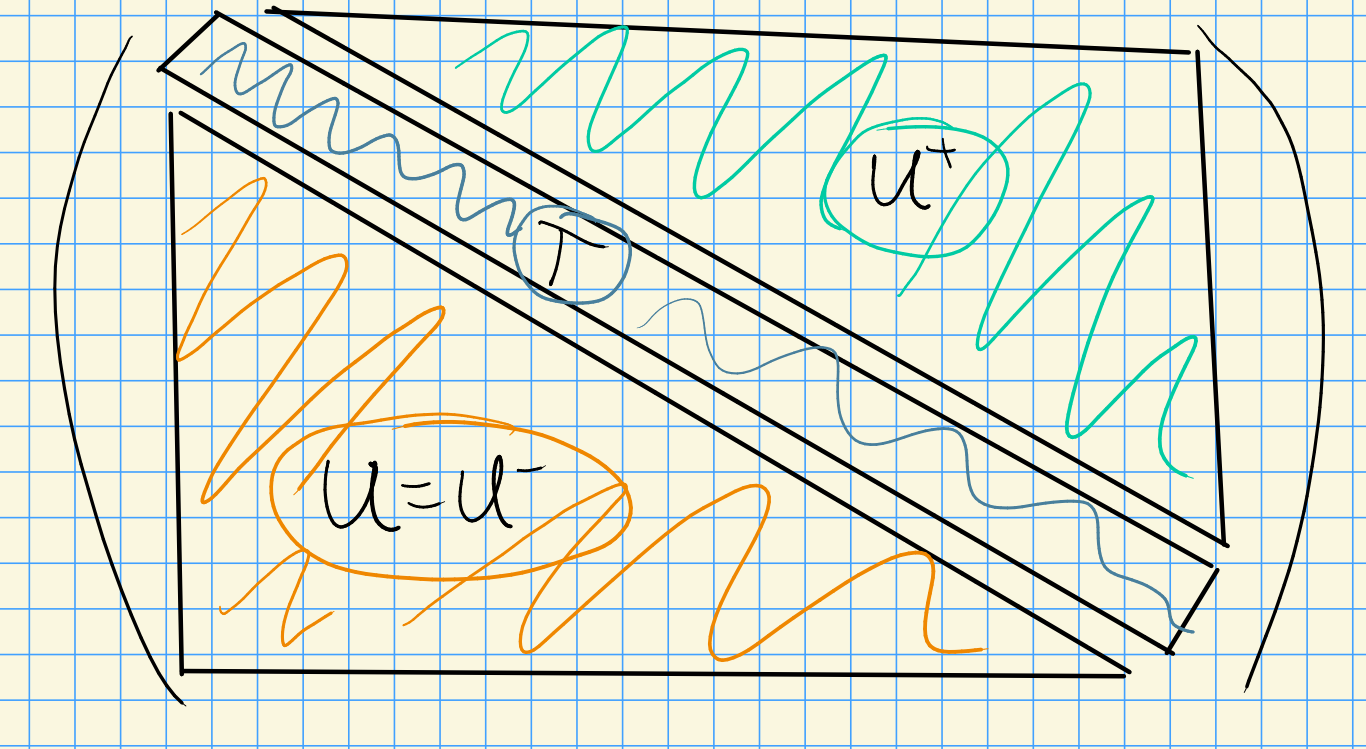 U⁺
T
U = U⁻